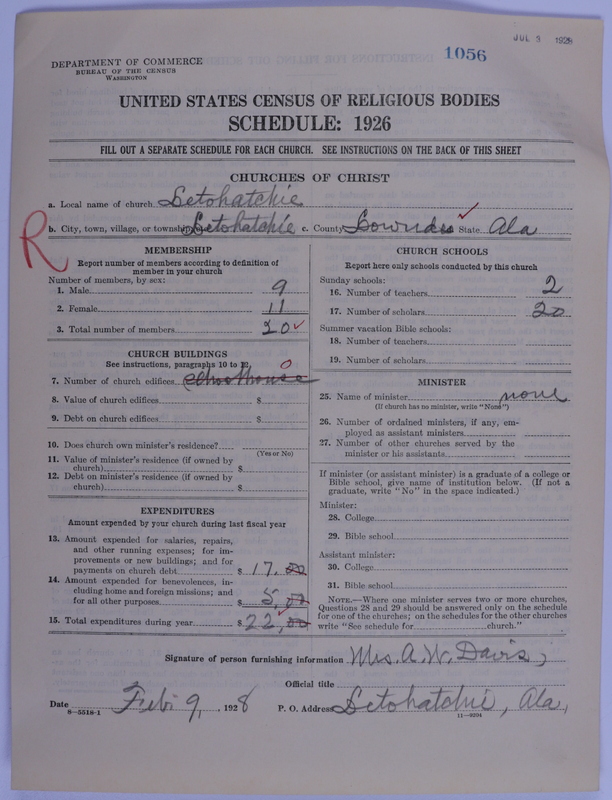 JUL 3 1928
1056
DEPARTMENT OF COMMERCE
BUREAU OF THE CENSUS
WASHINGTON
UNITED STATES CENSUS OF RELIGIOUS BODIES
SCHEDULE: 1926
FILL OUT A SEPARATE SCHEDULE FOR EACH CHURCH. SEE INSTRUCTIONS ON THE BACK OF THIS SHEET
CHURCHES OF CHRIST
a. Local name of church Letohatchie
b. City, town, village, or township Letohatchie c. County Lowndes State Ala
R
MEMBERSHIP
Report number of members according to definition of
member in your church
Number of members, by sex:
1. Male 9
2. Female 11
3. Total number of members 20
CHURCH BUILDINGS
See instructions, paragraphs 10 to 12.
7. Number of church edifices schoolhouse 0
8. Value of church edifices $
9. Debt on church edifices $
10. Does church own minister's residence?
(Yes or No)
11. Value of minister's residence (if owned by
church) $
12. Debt on minister's residence (if owned by
church) $
EXPENDITURES
Amount expended by your church during last fiscal year
13. Amount expended for salaries, repairs,
and other running expenses; for im-
provements or new buildings; and for
payments on church debt $ 17.00
14. Amount expended for benevolences, in-
cluding home and foreign missions; and
for all other purposes $ 5.00
15. Total expenditures during year $ 22.00
CHURCH SCHOOLS
Report here only schools conducted by this church
Sunday schools:
16. Number of teachers 2
17. Number of scholars 20
Summer vacation Bible schools:
18. Number of teachers
19. Number of scholars
MINISTER
25. Name of minister none
(If church has no minister, write "None")
26. Number of ordained ministers, if any, em-
ployed as assistant ministers
27. Number of other churches served by the
minister or his assistants
If minister (or assistant minister) is a graduate of a college or
Bible school, give name of institution below. (If not a
graduate, write "No" in the space indicated.)
Minister:
28. College
29. Bible school
Assistant minister:
30. College
31. Bible school
NOTE.—Where one minister serves two or more churches,
Questions 28 and 29 should be answered only on the schedule
for one of the churches; on the schedules for the other churches
write "See schedule for church."
Signature of person furnishing information Mrs. A. W. Davis,
Official title
Date Feb. 9, 1928 P. O. Address Letohatchie, Ala,
8—5518-1 11—9204